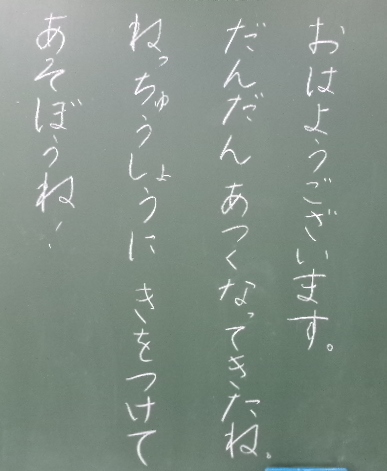 おはようございます。
だんだん あつくなってきたね。
ねっちゅうしょうに きをつけて
あそぼうね！